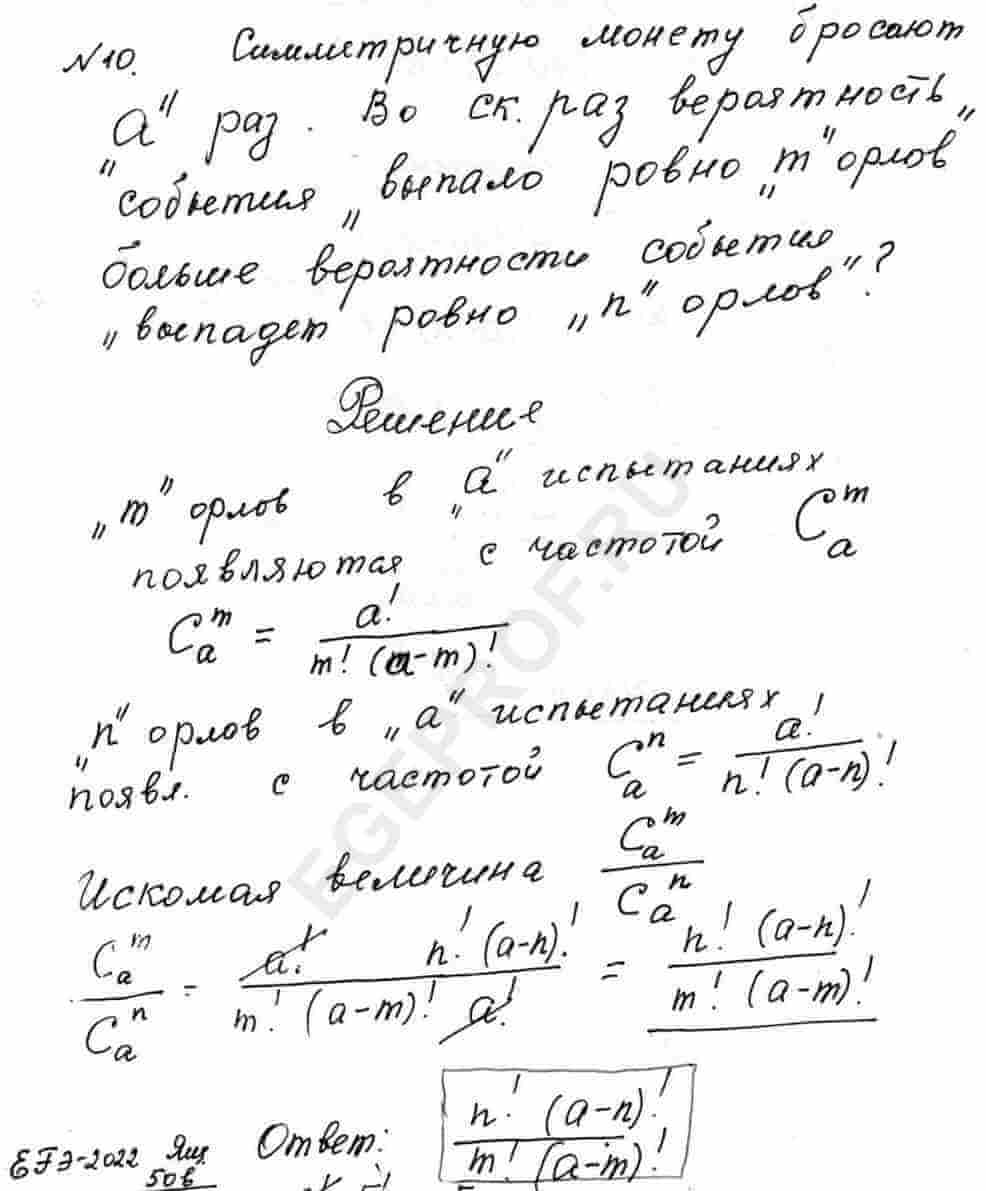 N10. Симметричную монету бросают
„a" раз. Во ск. раз вероятность
события „выпало ровно „m" орлов"
больше вероятности события
„выпадет ровно „n" орлов"?
Решение
„m" орлов в „a" испытаниях
появляются с частотой C_a^m
C_a^m = a! / m! (a-m)!
„n" орлов в „a" испытаниях
появл. с частотой C_a^n = a! / n! (a-n)!
Искомая величина C_a^m / C_a^n
C_a^m / C_a^n = a! n! (a-n)! / m! (a-m)! a! = n! (a-n)! / m! (a-m)!
Ответ: n! (a-n)! / m! (a-m)!
ЕГЭ-2022 Ящ
50в
EGEPROF.RU